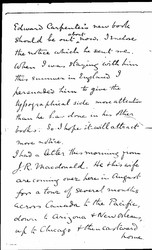 Edward Carpenter's new book
should be out about now. I enclose
the notice which he sent me.
When I was staying with him
this summer in England I
persuaded him to give the
typographical side more attention
than he has done in his other
books. So I hope it will attract
more notice.
I had a letter this morning from
J. R. Macdonald. He & his wife
are coming over here in August
for a tour of several months
across Canada to the Pacific,
down to Arizona & New Orleans,
up to Chicago & then eastward
home